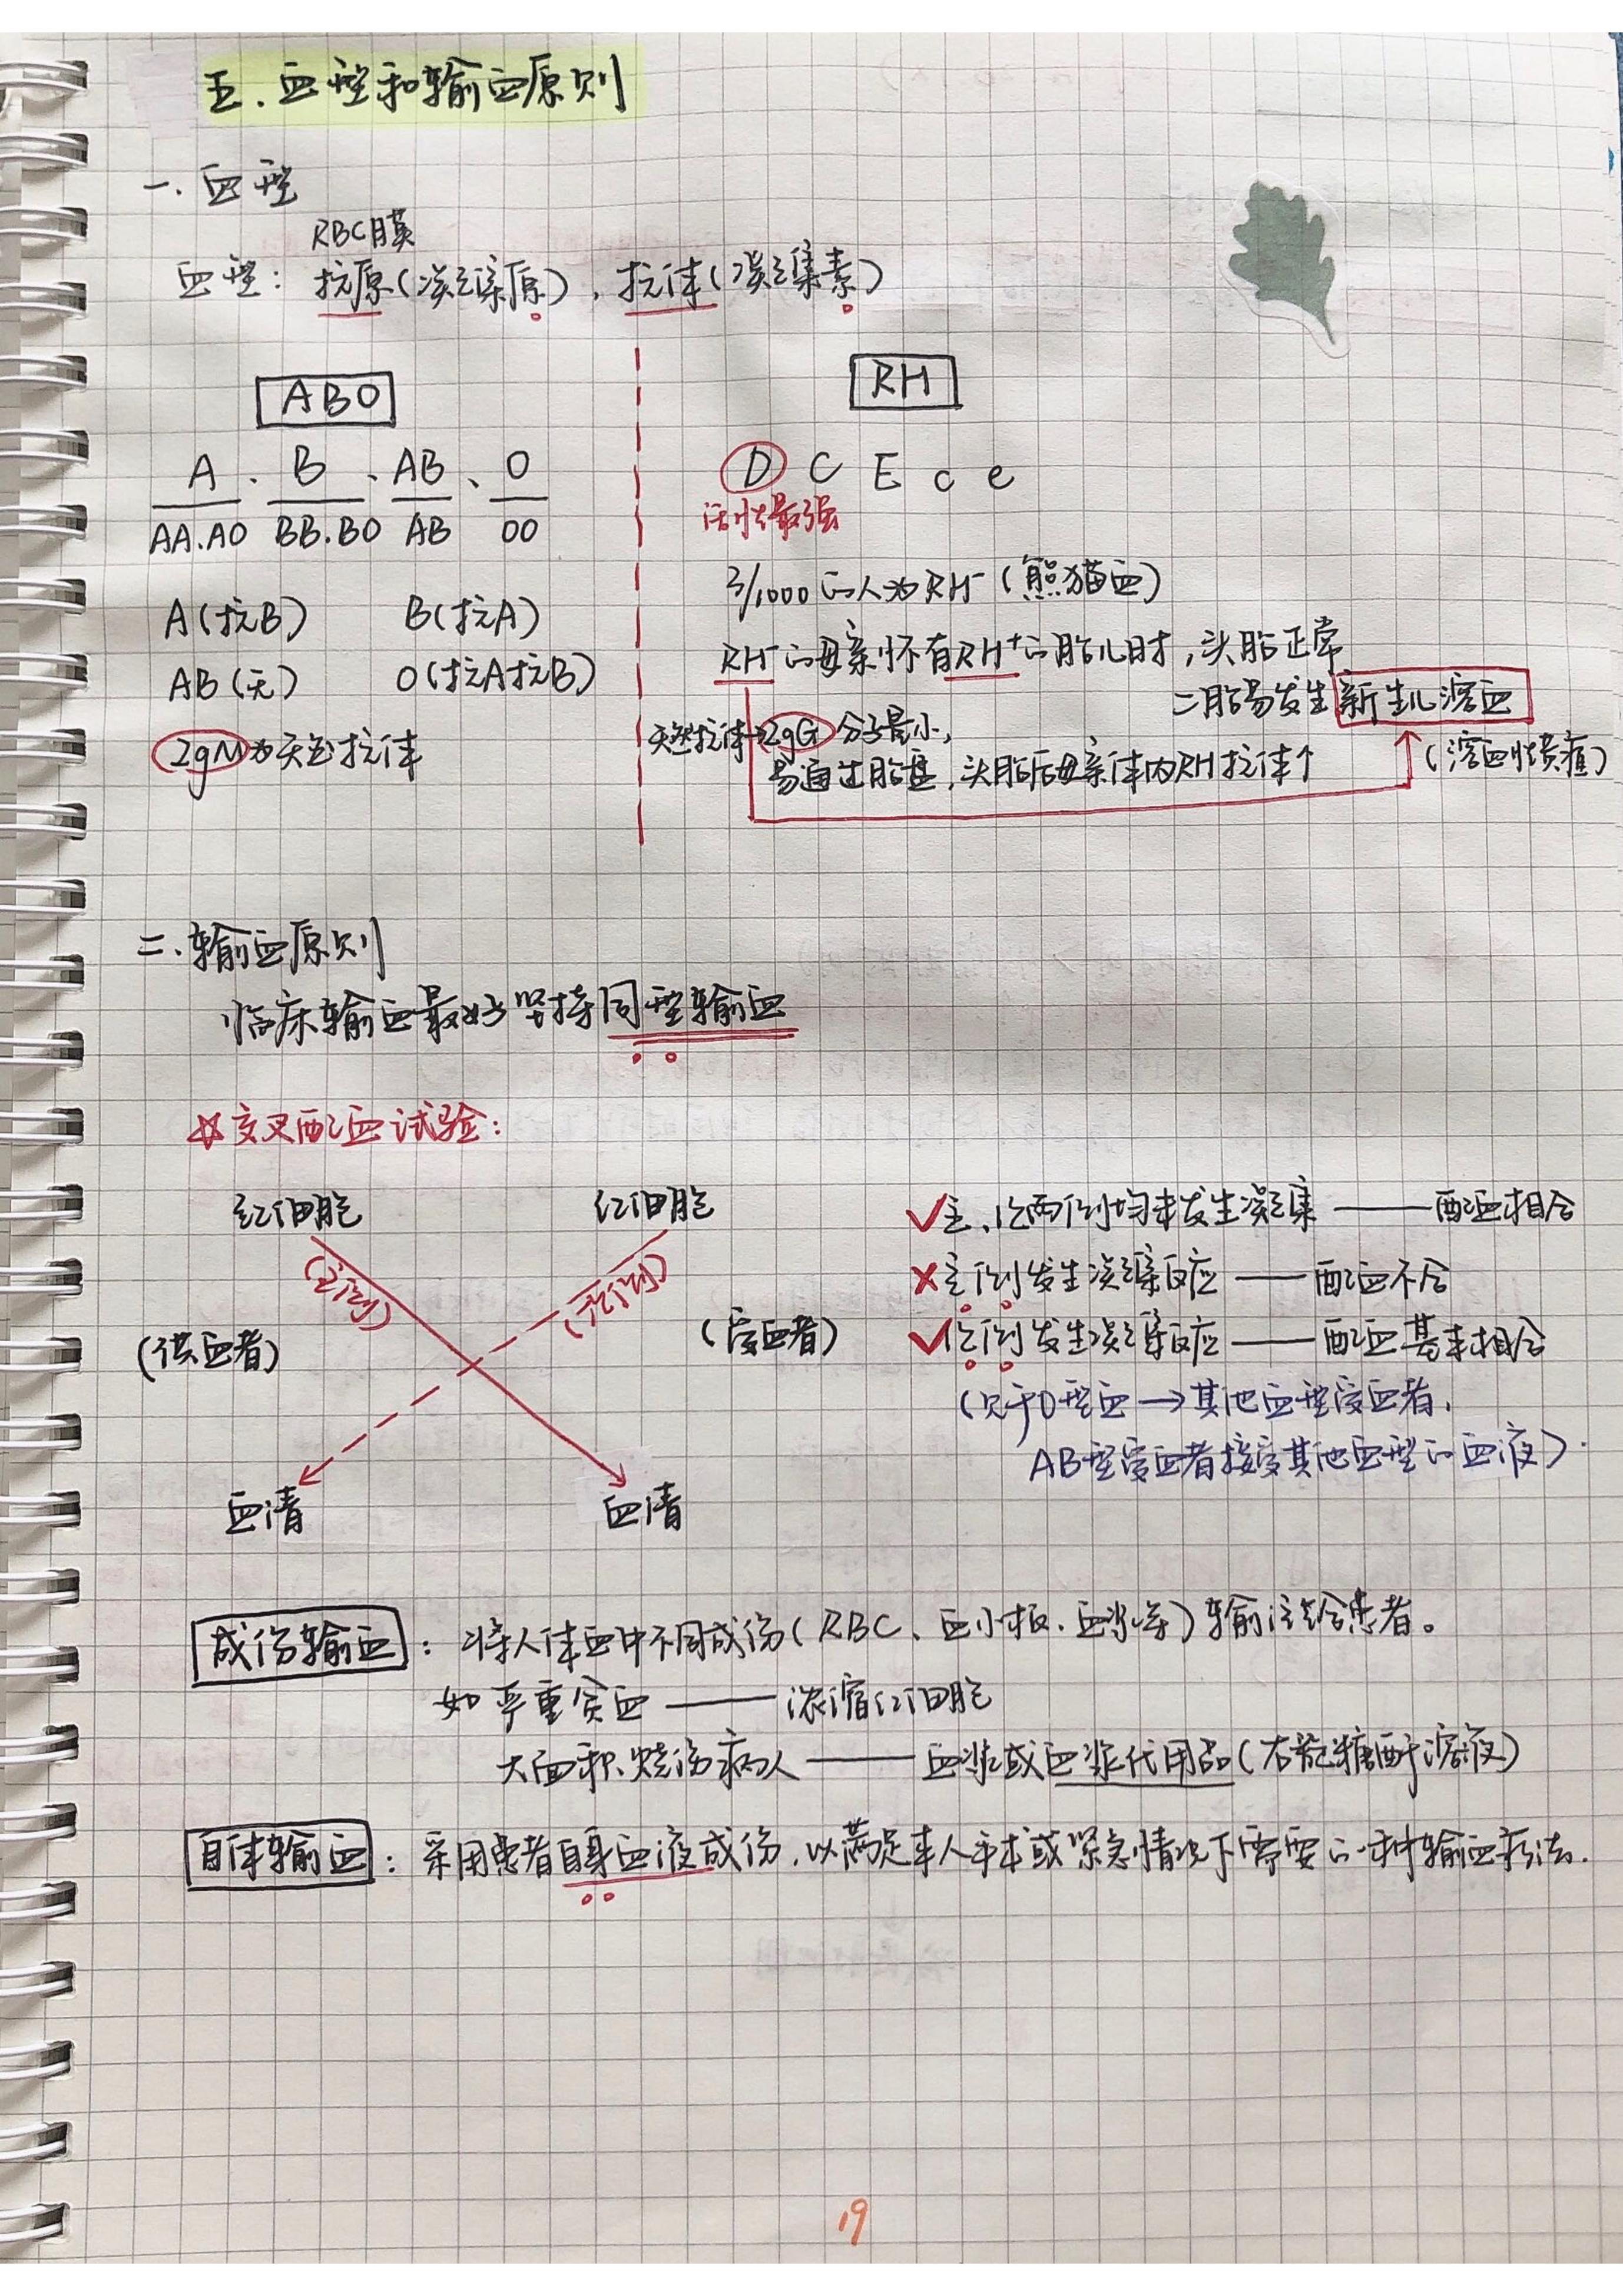 五.血型和输血原则
一.血型
RBC膜
血型：抗原(凝集原)，抗体(凝集素)
ABO
A、B、AB、O
AA.AO BB.BO AB OO
A(抗B) B(抗A)
AB(无) O(抗A抗B)
IgM为天然抗体
RH
D C E c e
活性最强
3/1000的人为RH-(熊猫血)
RH-的母亲怀有RH+的胎儿时，头胎正常
二胎易发生新生儿溶血
(溶血性黄疸)
天然抗体→IgG分子量小，
易通过胎盘，头胎后母亲体内RH抗体↑
二.输血原则
临床输血最好坚持同型输血
☆交叉配血试验：
红细胞 红细胞
(主侧) (次侧)
(供血者) (受血者)
血清 血清
✓主、次两侧均未发生凝集——配血相合
✗主侧发生凝集反应——配血不合
✓次侧发生凝集反应——配血基本相合
(见于O型血→其他血型受血者，
AB型受血者接受其他血型的血液).
成份输血：将人体血中不同成份(RBC、血小板.血浆等)输注给患者。
如严重贫血——浓缩红细胞
大面积烧伤病人——血浆或血浆代用品(右旋糖酐溶液)
自体输血：采用患者自身血液成份，以满足本人手术或紧急情况下需要的一种输血疗法.
19